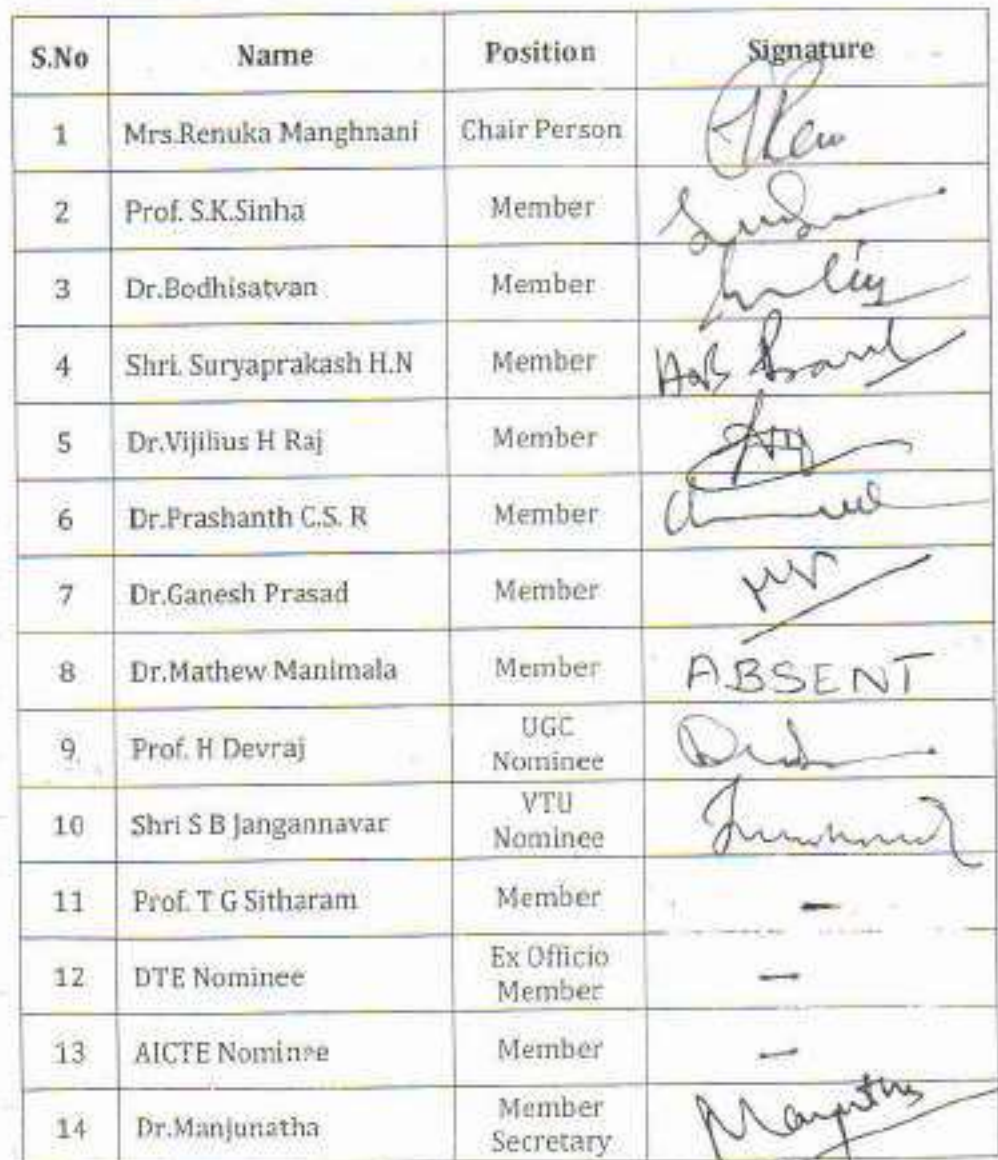 S.No Name Position Signature
1 Mrs.Renuka Manghnani Chair Person
2 Prof. S.K.Sinha Member
3 Dr.Bodhisatvan Member
4 Shri. Suryaprakash H.N Member
5 Dr.Vijilius H Raj Member
6 Dr.Prashanth C.S. R Member
7 Dr.Ganesh Prasad Member
8 Dr.Mathew Manimala Member ABSENT
9 Prof. H Devraj UGC
Nominee
10 Shri S B Jangannavar VTU
Nominee
11 Prof. T G Sitharam Member -
12 DTE Nominee Ex Officio
Member -
13 AICTE Nominee Member -
14 Dr.Manjunatha Member
Secretary